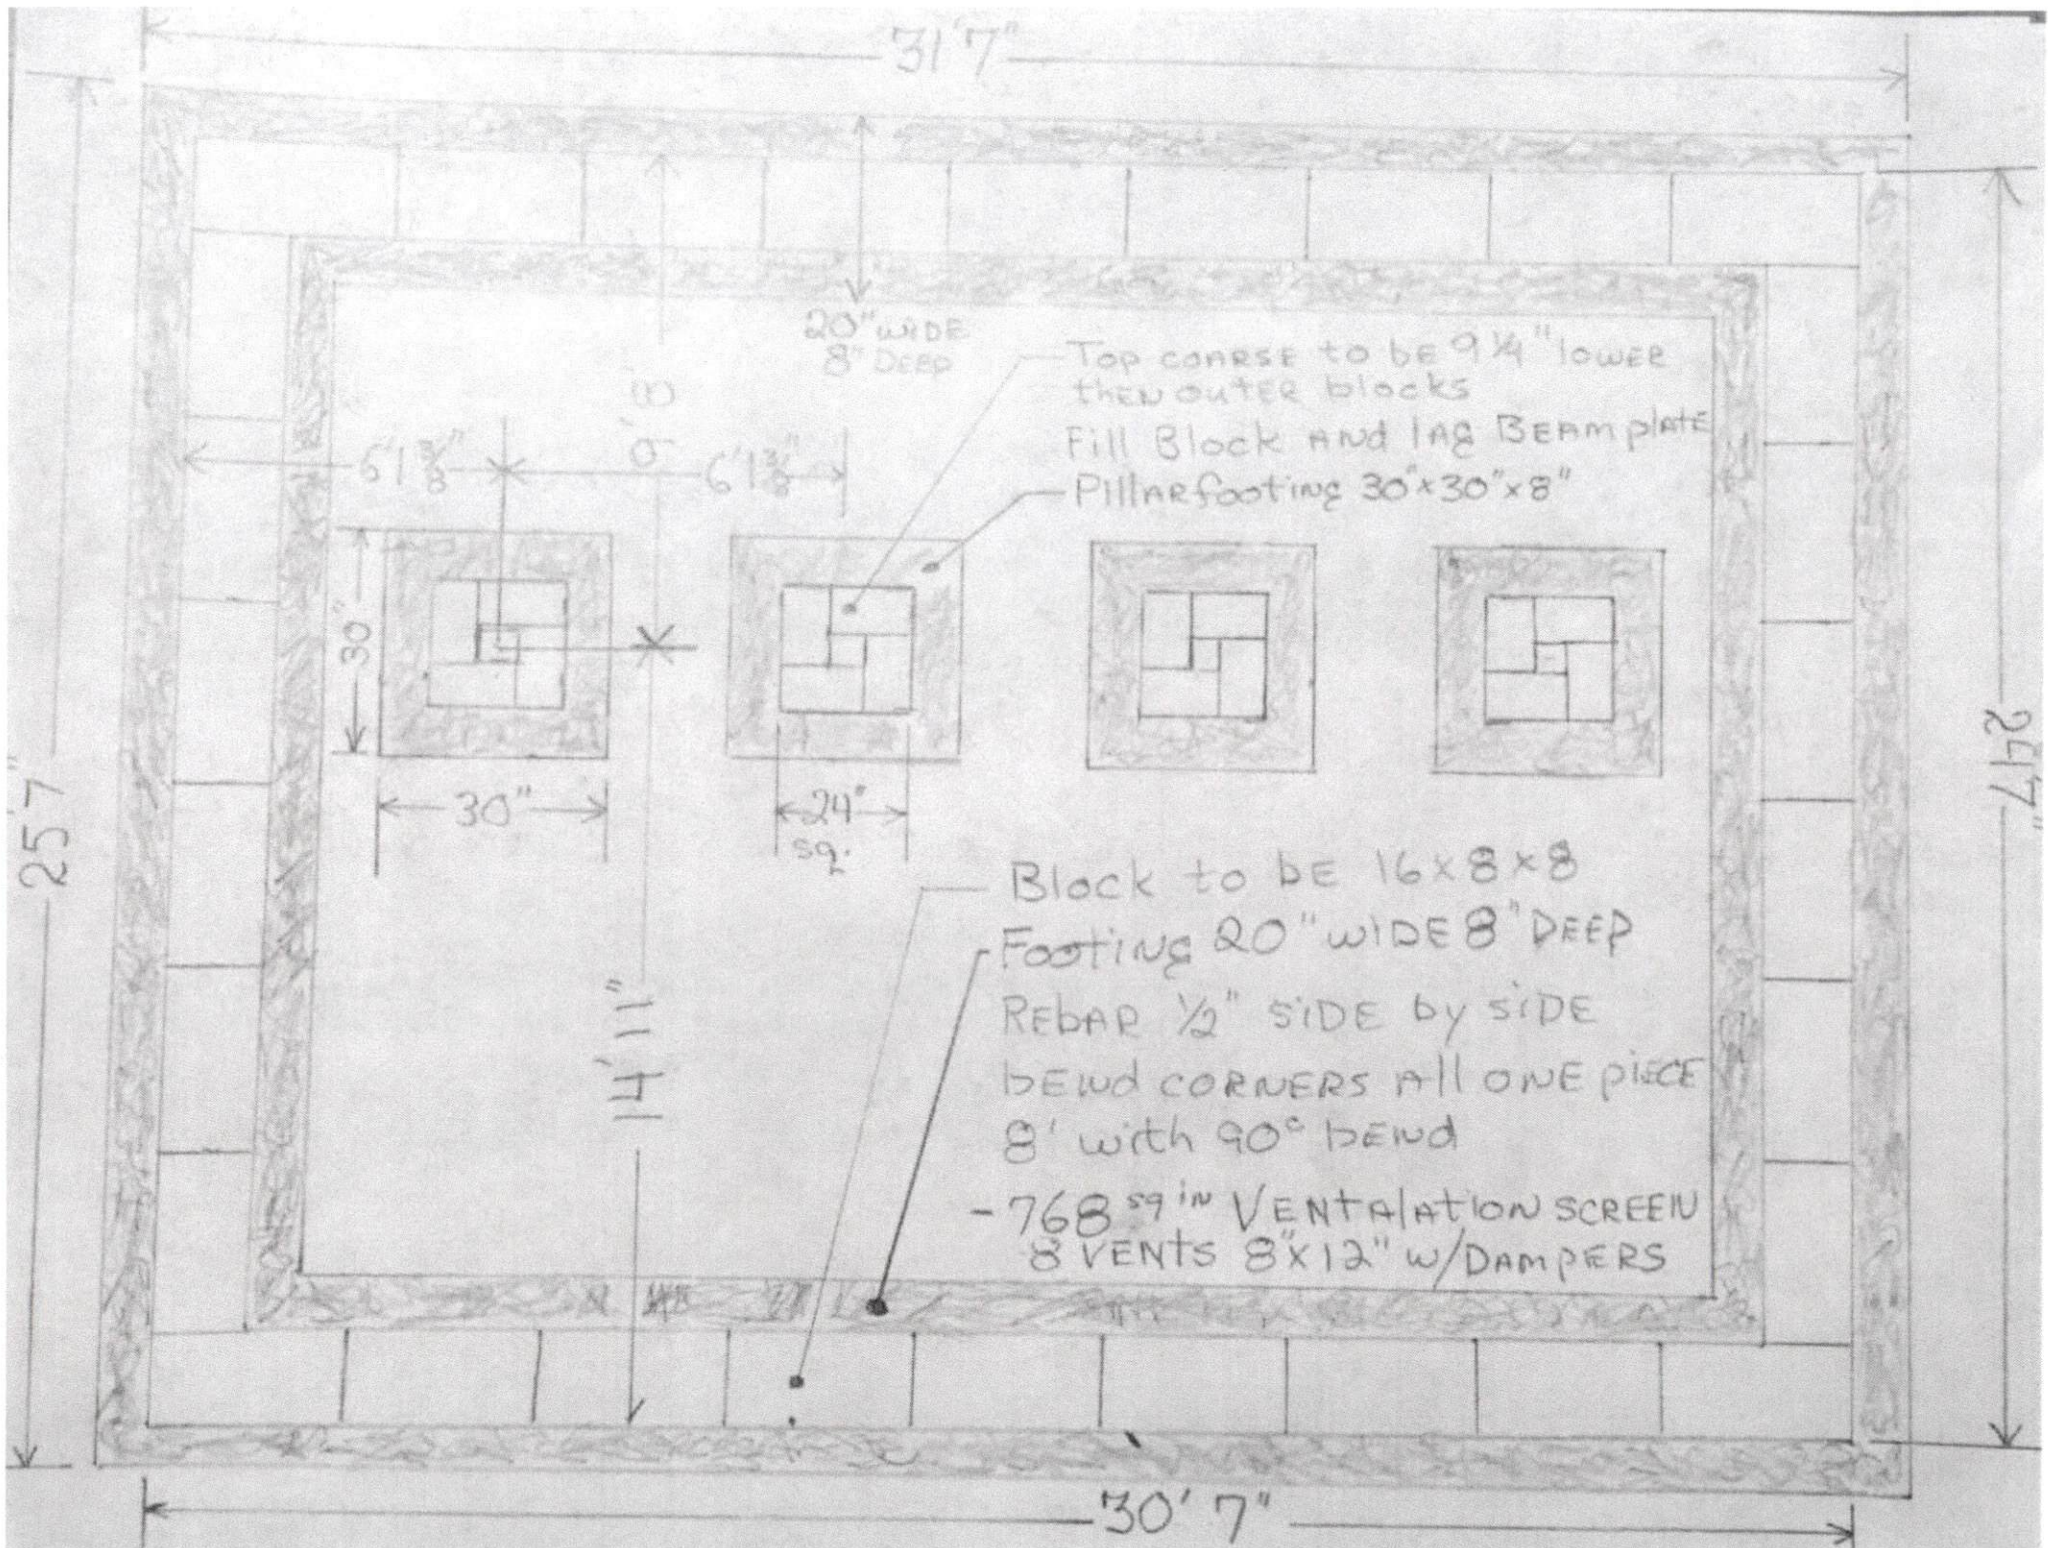 31'7"
20" WIDE
8" DEEP
TOP COARSE to bE 9 1/4" lowER
thEN outER blocks
Fill Block AND lAg BEAM plAtE
PillAR footiNg 30"x30"x8"
6'1 3/8"
6'1 3/8"
9'8"
30"
30"
24"
sq.
25'7"
24'7"
14'11"
Block to bE 16x8x8
FootiNg 20" WIDE 8" DEEP
REbAR 1/2" SiDE by SiDE
bENd CORNERS All ONE piECE
8' with 90° bENd
- 768 sq iN VENtAlAtION SCREEN
8 VENtS 8"x12" w/DAMpERS
30'7"